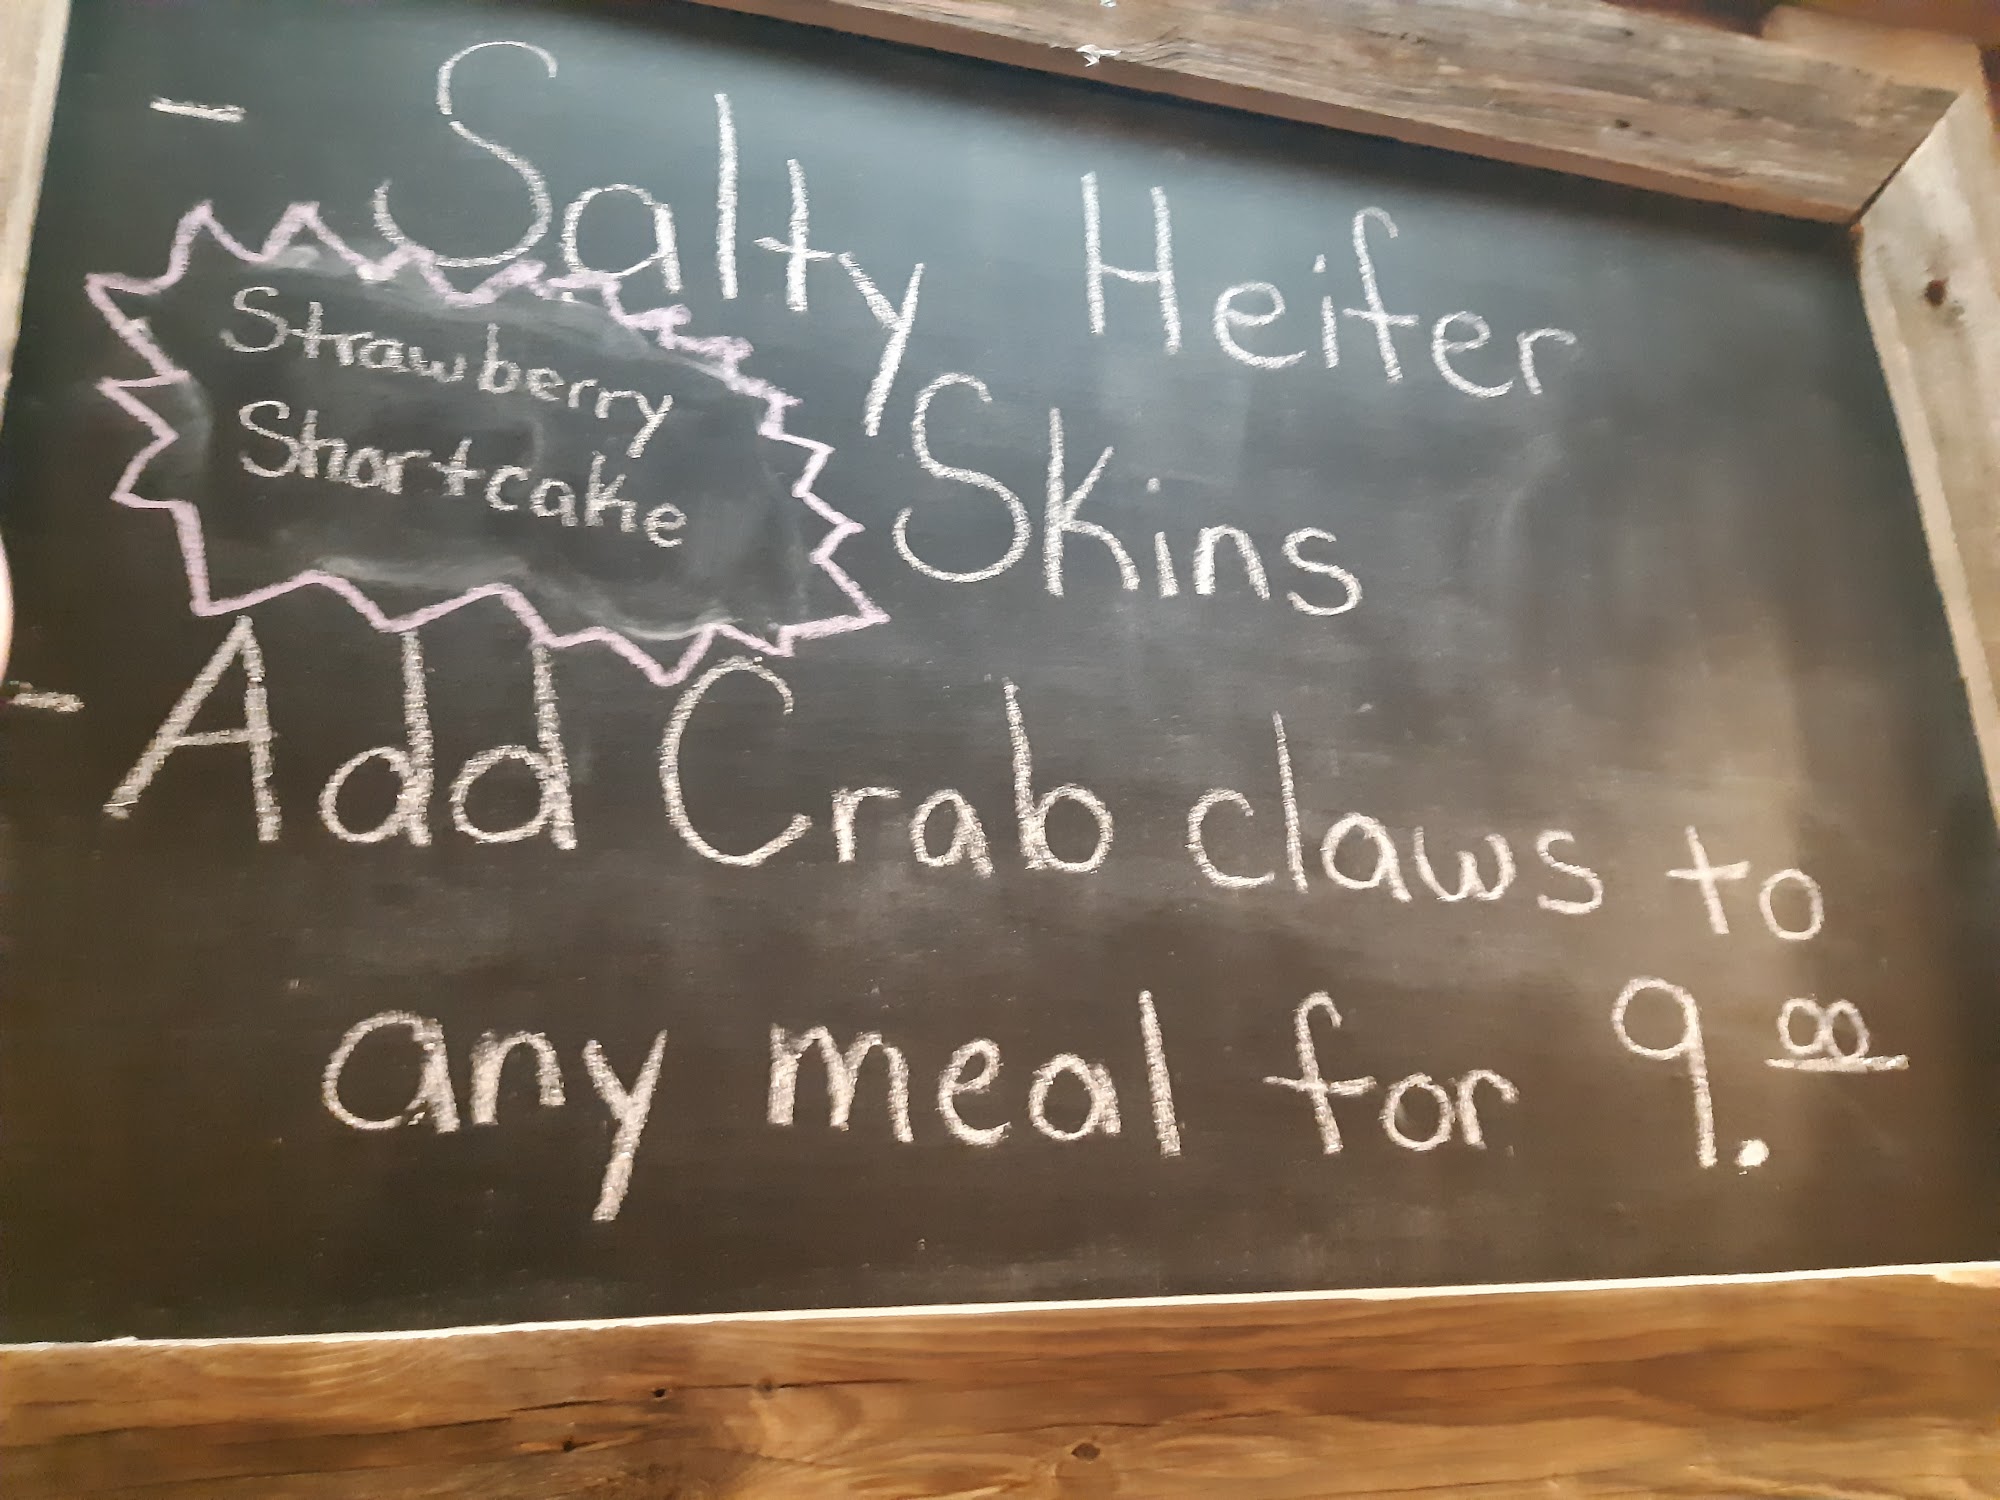 - Salty Heifer
Skins
Strawberry
Shortcake
- Add Crab claws to
any meal for 9.00